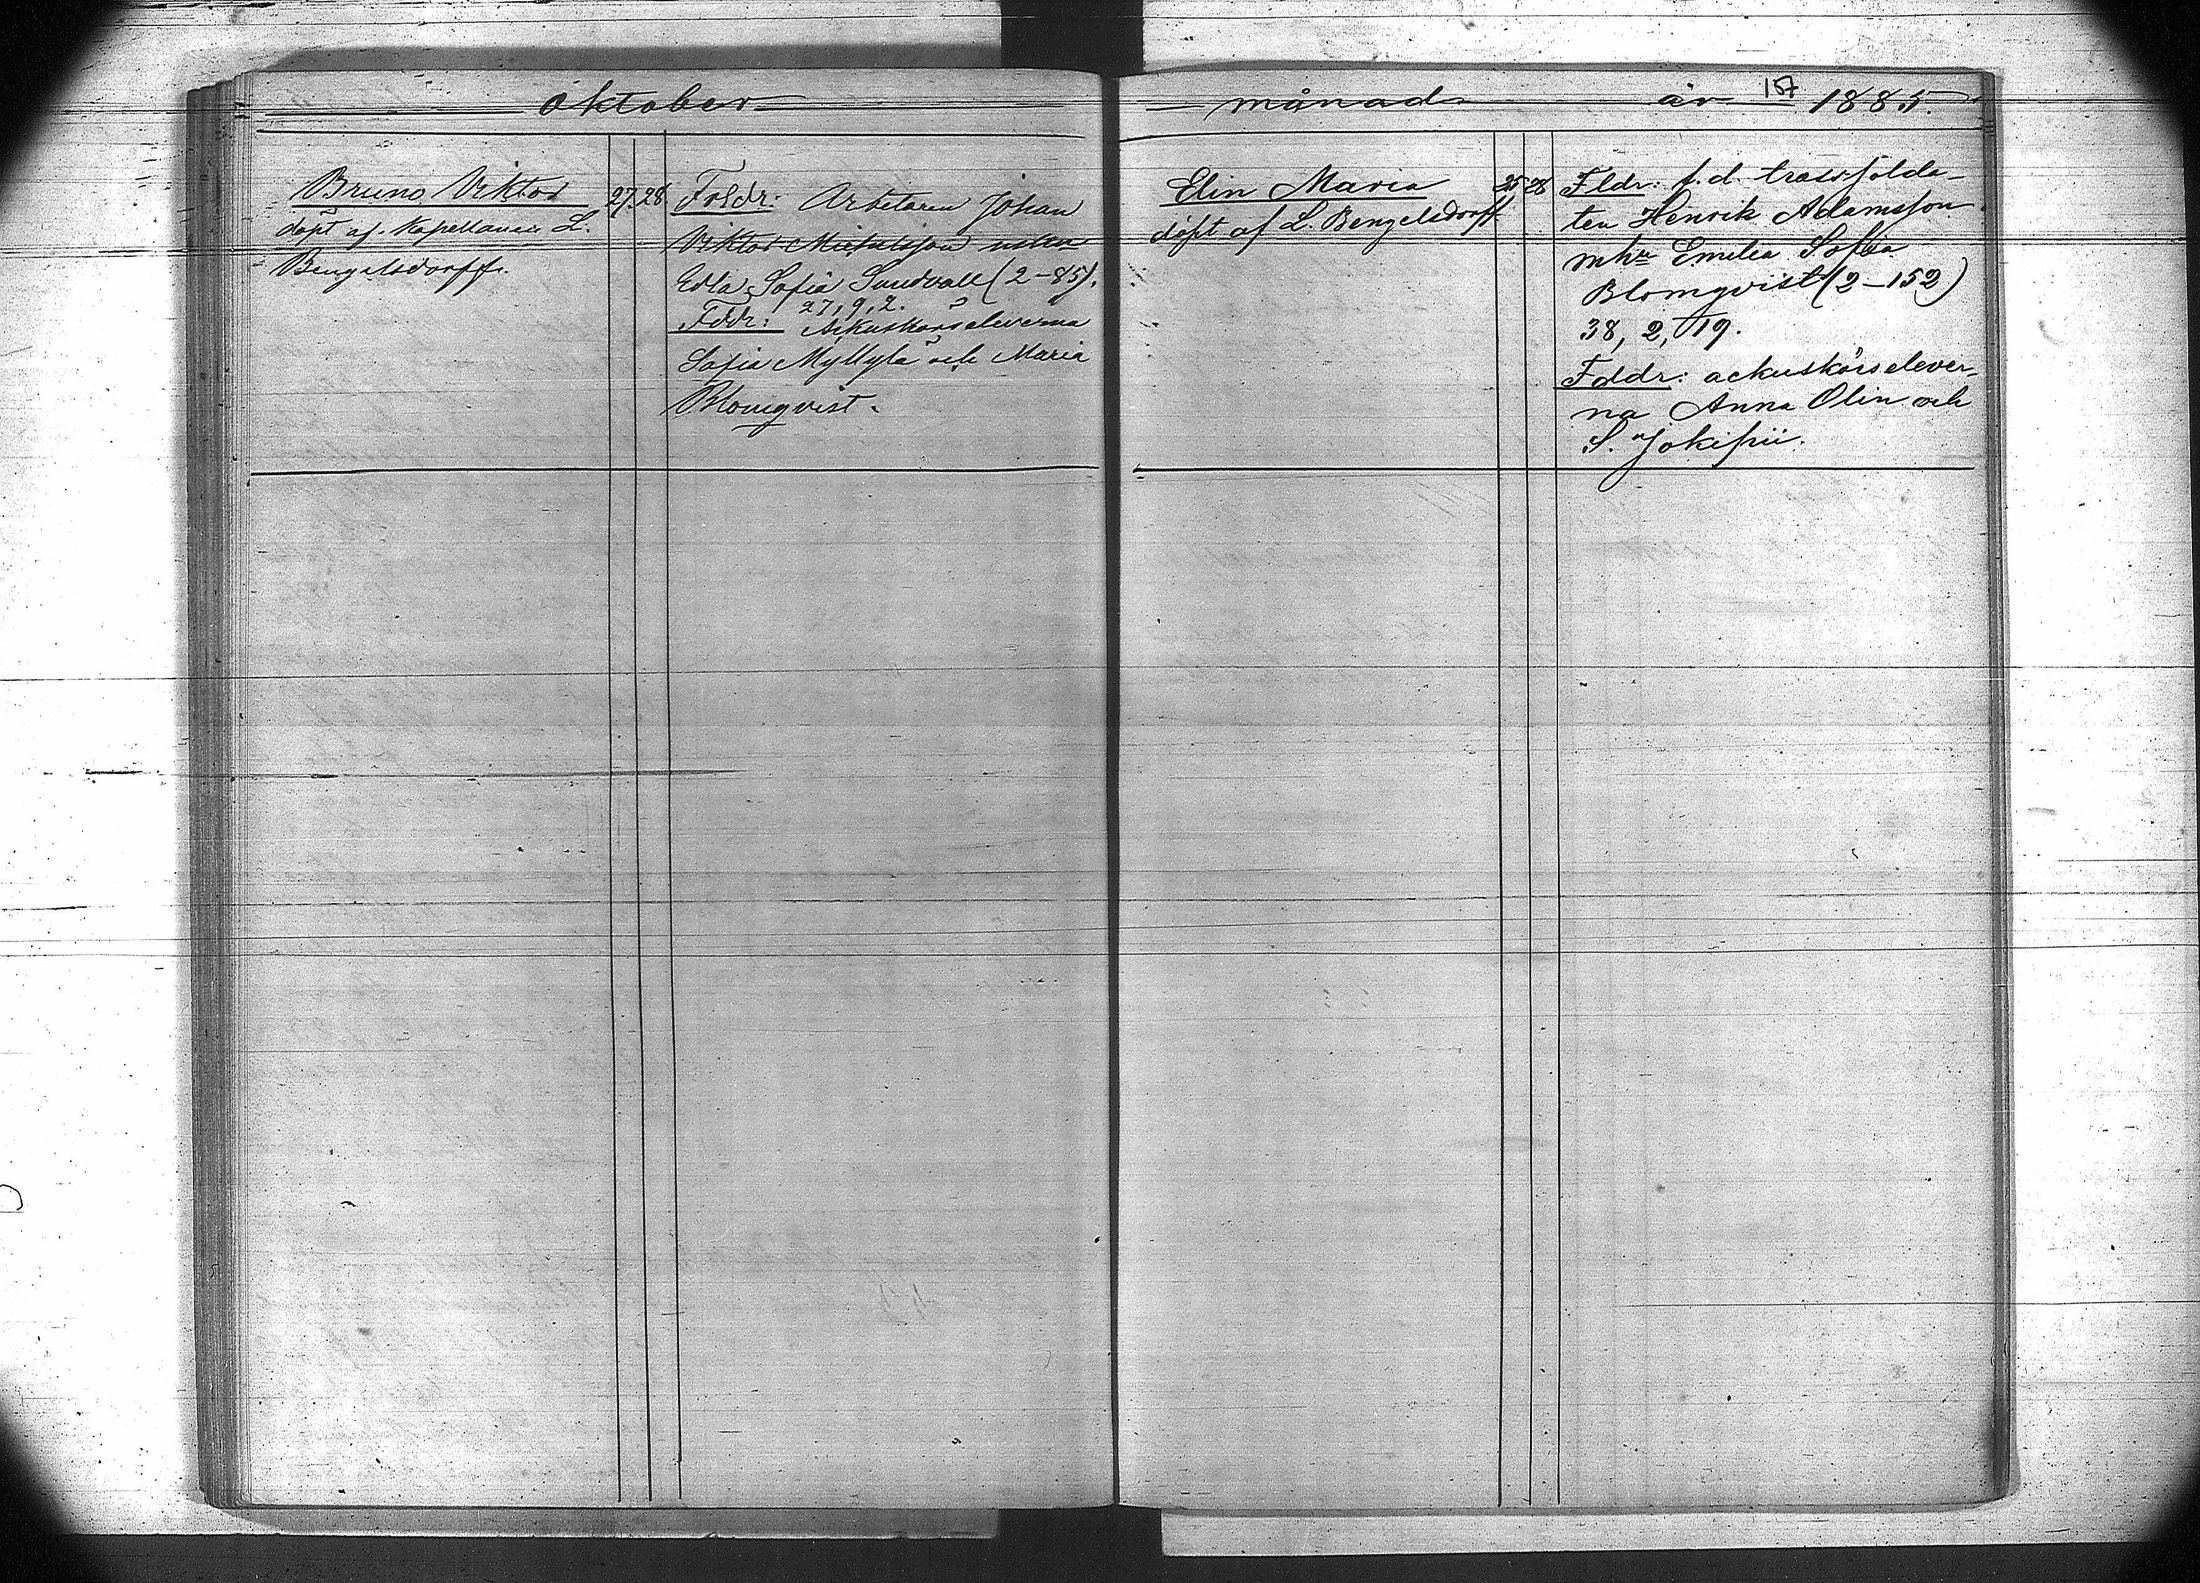 Oktober
Bruno Viktor
döpt af Kapellanen L.
Bengelsdorff.
27. 28.
Frldr: Arbetaren Johan
Viktor Michelsson
Edla Sofia Sundvall (2–85).
27, 9, 2.
Fddr: Ackuskörseleverna
Sofia Myllylä och Maria
Blomqvist.
månad år 1885.
157
Elin Maria
döpt af L. Bengelsdorff
25 28
Fldr: f.d.
ten Henrik Adamsson
mhu Emelia Sofia
Blomqvist (2–152)
38, 2, 19.
Fddr: ackuskörselever-
na Anna Olin och
S. Jokipii.